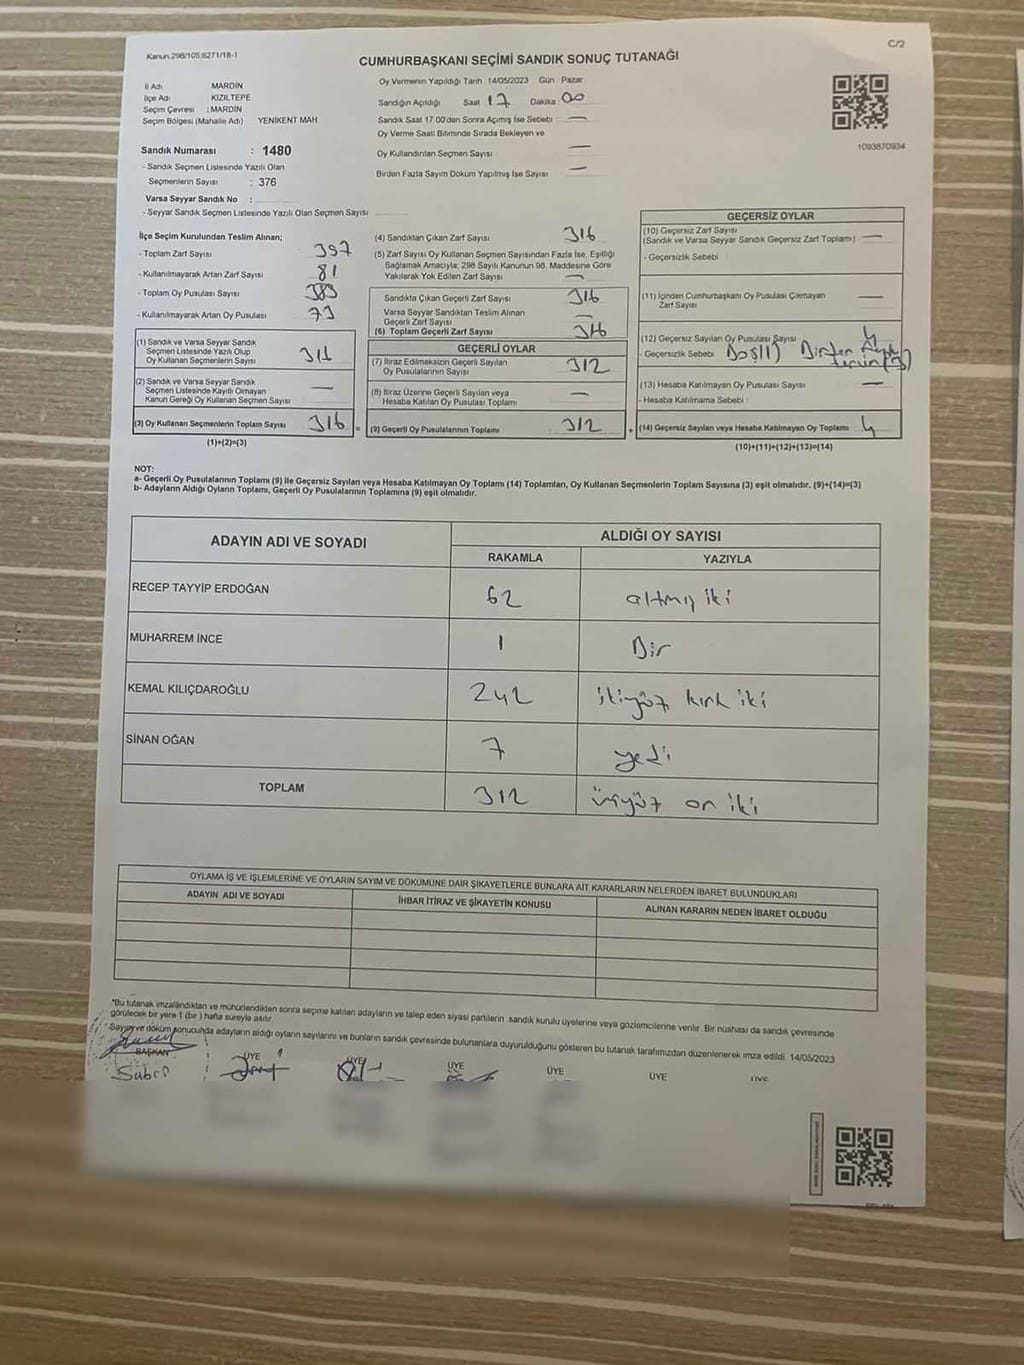 Kanun 298/105 6271/18-1
C/2
CUMHURBAŞKANI SEÇİMİ SANDIK SONUÇ TUTANAĞI
İl Adı MARDİN
İlçe Adı KIZILTEPE
Seçim Çevresi : MARDİN
Seçim Bölgesi (Mahalle Adı) YENİKENT MAH
Sandık Numarası : 1480
- Sandık Seçmen Listesinde Yazılı Olan
Seçmenlerin Sayısı : 376
Varsa Seyyar Sandık No :
- Seyyar Sandık Seçmen Listesinde Yazılı Olan Seçmen Sayısı
Oy Vermenin Yapıldığı Tarih 14/05/2023 Gün Pazar
Sandığın Açıldığı Saat 17 Dakika 00
Sandık Saat 17 00'den Sonra Açımış İse Sebebi : —
Oy Verme Saati Bitiminde Sırada Bekleyen ve
Oy Kullandırılan Seçmen Sayısı —
Birden Fazla Sayım Döküm Yapılmış İse Sayısı —
1093870934
İlçe Seçim Kurulundan Teslim Alınan;
- Toplam Zarf Sayısı 397
- Kullanılmayarak Artan Zarf Sayısı 81
- Toplam Oy Pusulası Sayısı 389
- Kullanılmayarak Artan Oy Pusulası 73
(1) Sandık ve Varsa Seyyar Sandık
Seçmen Listesinde Yazılı Olup
Oy Kullanan Seçmenlerin Sayısı 316
(2) Sandık ve Varsa Seyyar Sandık
Seçmen Listesinde Kayıtlı Olmayan
Kanun Gereği Oy Kullanan Seçmen Sayısı —
(3) Oy Kullanan Seçmenlerin Toplam Sayısı 316
(1)+(2)=(3)
(4) Sandıktan Çıkan Zarf Sayısı 316
(5) Zarf Sayısı Oy Kullanan Seçmen Sayısından Fazla İse, Eşitliği
Sağlamak Amacıyla; 298 Sayılı Kanunun 98. Maddesine Göre
Yakılarak Yok Edilen Zarf Sayısı —
Sandıkta Çıkan Geçerli Zarf Sayısı 316
Varsa Seyyar Sandıktan Teslim Alınan
Geçerli Zarf Sayısı —
(6) Toplam Geçerli Zarf Sayısı 316
GEÇERLİ OYLAR
(7) İtiraz Edilmeksizin Geçerli Sayılan
Oy Pusulalarının Sayısı 312
(8) İtiraz Üzerine Geçerli Sayılan veya
Hesaba Katılan Oy Pusulası Toplamı —
= (9) Geçerli Oy Pusulalarının Toplamı 312 +
GEÇERSİZ OYLAR
(10) Geçersiz Zarf Sayısı
(Sandık ve Varsa Seyyar Sandık Geçersiz Zarf Toplamı) —
- Geçersizlik Sebebi
(11) İçinden Cumhurbaşkanı Oy Pusulası Çıkmayan
Zarf Sayısı —
(12) Geçersiz Sayılan Oy Pusulası Sayısı 4
- Geçersizlik Sebebi Boş(1) Birden
(13) Hesaba Katılmayan Oy Pusulası Sayısı —
- Hesaba Katılmama Sebebi
(14) Geçersiz Sayılan veya Hesaba Katılmayan Oy Toplamı 4
(10)+(11)+(12)+(13)=(14)
NOT:
a- Geçerli Oy Pusulalarının Toplamı (9) ile Geçersiz Sayılan veya Hesaba Katılmayan Oy Toplamı (14) Toplamları, Oy Kullanan Seçmenlerin Toplam Sayısına (3) eşit olmalıdır. (9)+(14)=(3)
b- Adayların Aldığı Oyların Toplamı, Geçerli Oy Pusulalarının Toplamına (9) eşit olmalıdır.
ADAYIN ADI VE SOYADI ALDIĞI OY SAYISI
RAKAMLA YAZIYLA
RECEP TAYYİP ERDOĞAN 62 altmış iki
MUHARREM İNCE 1 Bir
KEMAL KILIÇDAROĞLU 242 ikiyüz kırk iki
SİNAN OĞAN 7 yedi
TOPLAM 312 üçyüz on iki
OYLAMA İŞ VE İŞLEMLERİNE VE OYLARIN SAYIM VE DÖKÜMÜNE DAİR ŞİKAYETLERLE BUNLARA AİT KARARLARIN NELERDEN İBARET BULUNDUKLARI
ADAYIN ADI VE SOYADI İHBAR İTİRAZ VE ŞİKAYETİN KONUSU ALINAN KARARIN NEDEN İBARET OLDUĞU
*Bu tutanak imzalandıktan ve mühürlendikten sonra seçime katılan adayların ve talep eden siyasi partilerin sandık kurulu üyelerine veya gözlemcilerine verilir. Bir nüshası da sandık çevresinde
görülecek bir yere 1 (bir) hafta süreyle asılır.
Sayım ve döküm sonucunda adayların aldığı oyların sayılarını ve bunların sandık çevresinde bulunanlara duyurulduğunu gösteren bu tutanak tarafımızdan düzenlenerek imza edildi. 14/05/2023
BAŞKAN ÜYE ÜYE ÜYE ÜYE ÜYE ÜYE